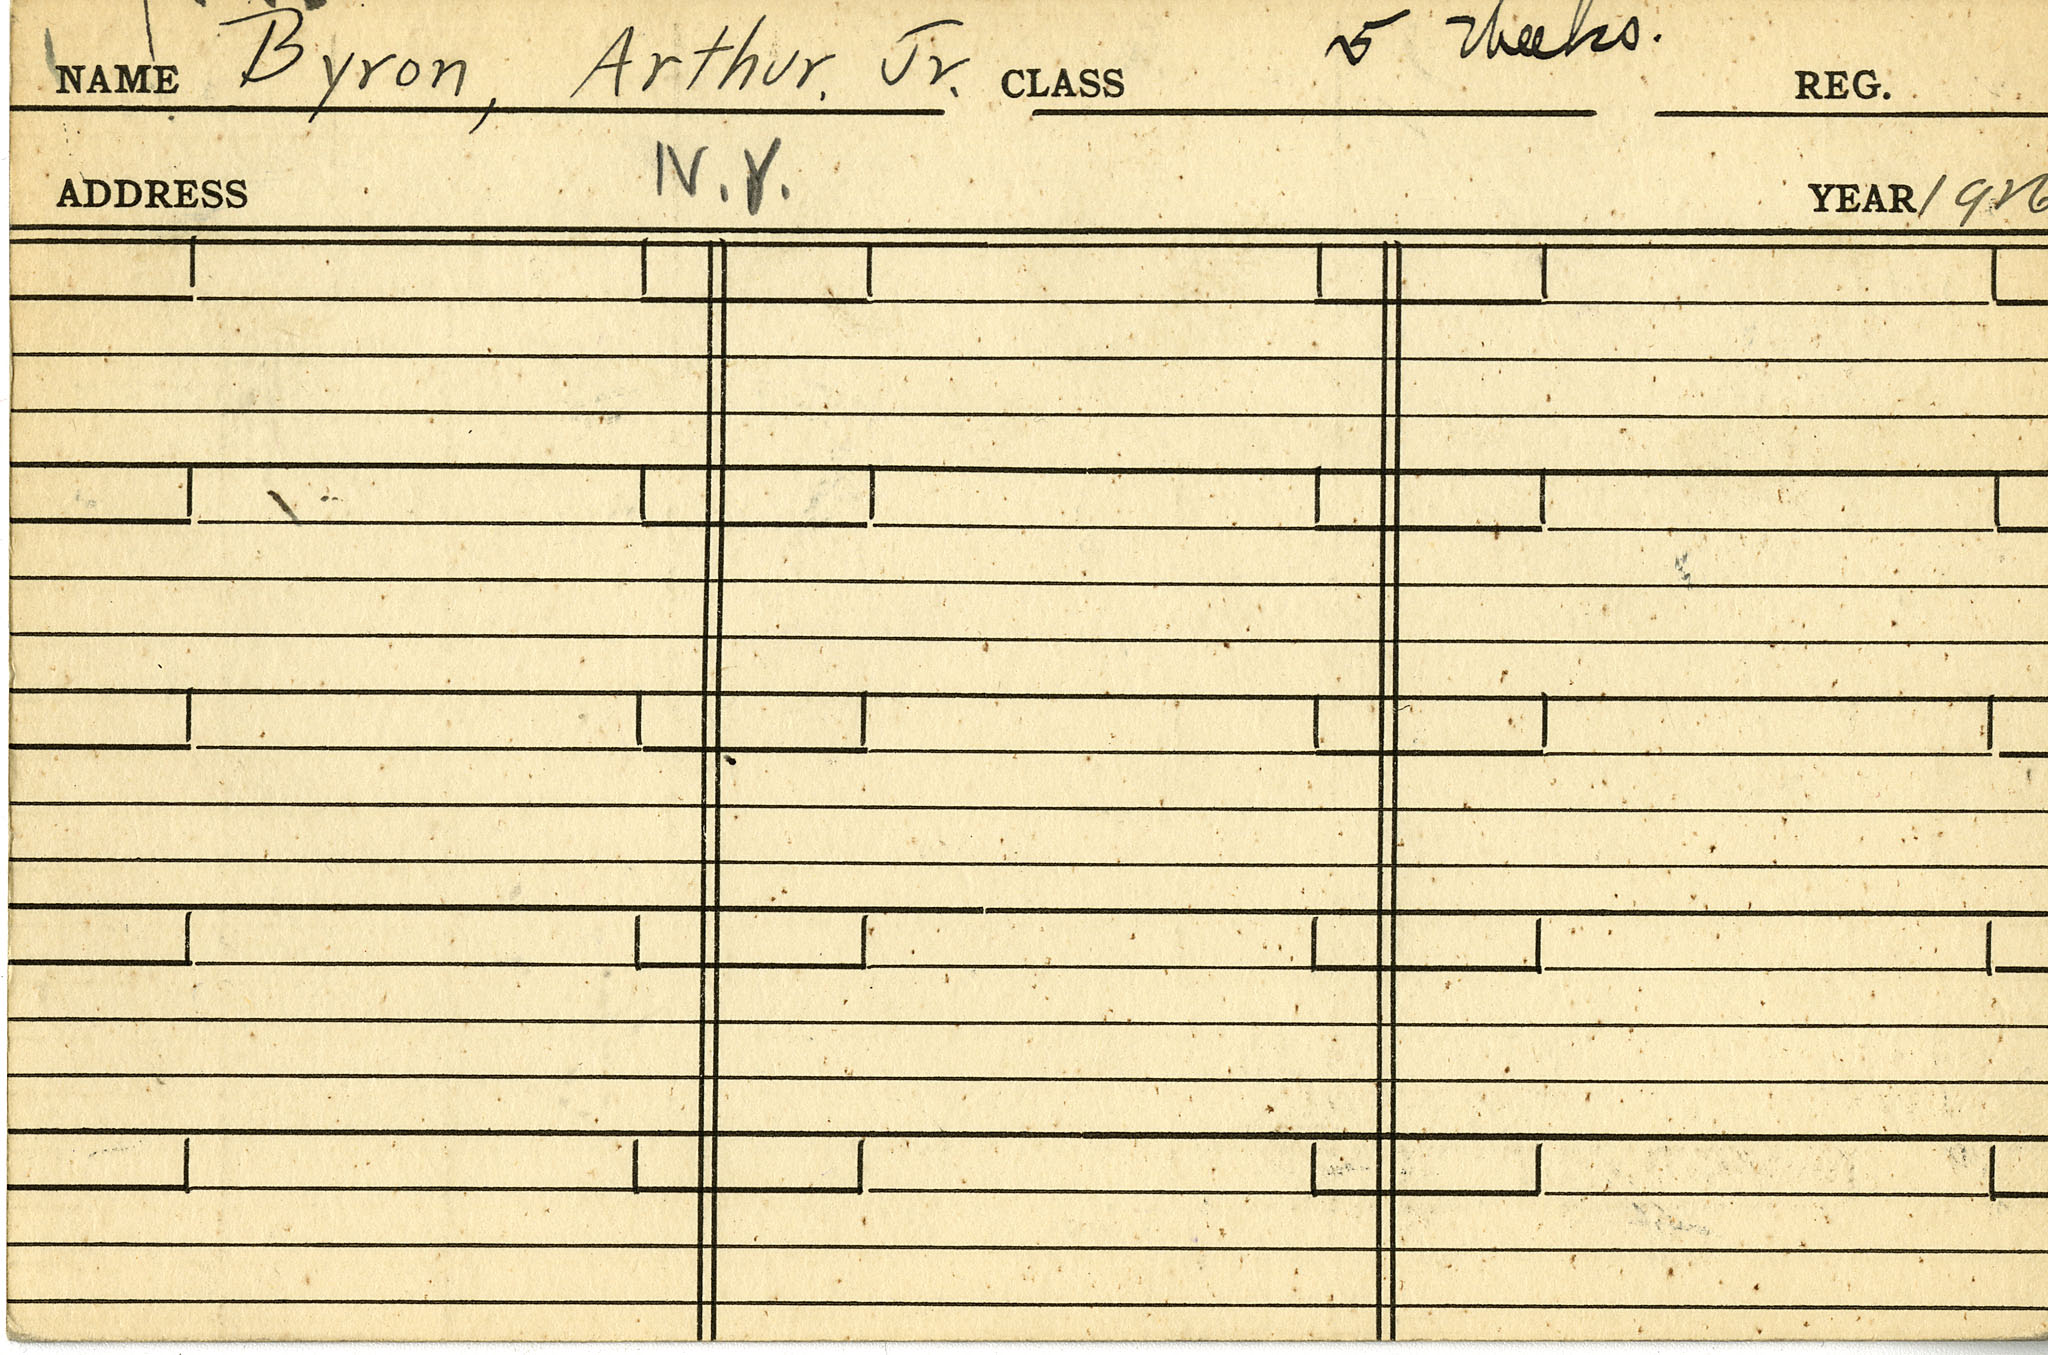 NAME Byron, Arthur. Jr. CLASS 5 Weeks. REG.
ADDRESS N.Y. YEAR 1926